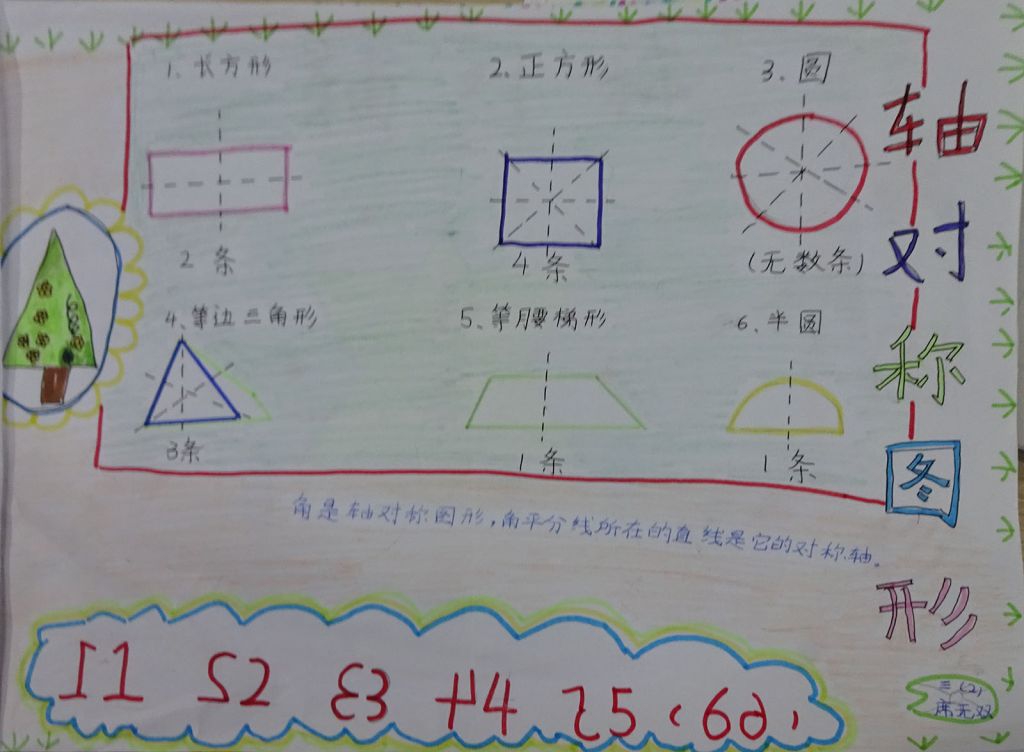 轴对称图形
1、长方形
2、正方形
3、圆
2条
4条
(无数条)
4、等边三角形
5、等腰梯形
6、半圆
3条
1条
1条
角是轴对称图形,角平分线所在的直线是它的对称轴。
1 2 3 4 5 6
三(2)